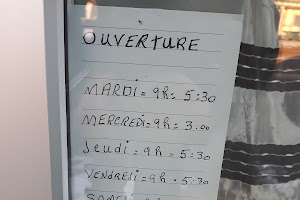 OUVERTURE
MARDI = 9h = 5:30
MERCREDI = 9h = 3.00
Jeudi = 9h - 5:30
VENDREDI = 9h - 5:30